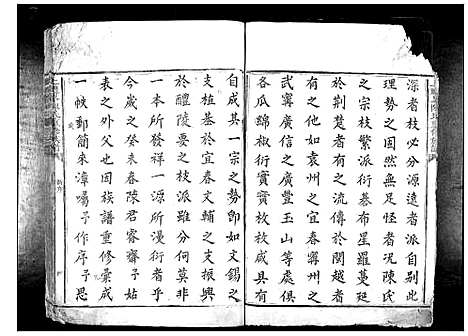 深者枝必分源遠者派自別此
理勢之固然無足怪者况陳氏
之宗枝繁派衍碁布星羅蔓延
於荆楚者有之流傳於閩越者
有之他如袁州之宜春寧州之
武寧廣信之廣豐玉山等處俱
各瓜綿椒衍實實枚枚咸具有
自成其一宗之勢卽如文錫之
支植基於宜春文輔之支振興
於醴陵要之枝派雖分何莫非
一本所發祥一源所漫衍者乎
今歲之癸未春陳君睿齋予姑
表之外父也因族譜重修彙成
一帙郵簡來漳囑予作序予思